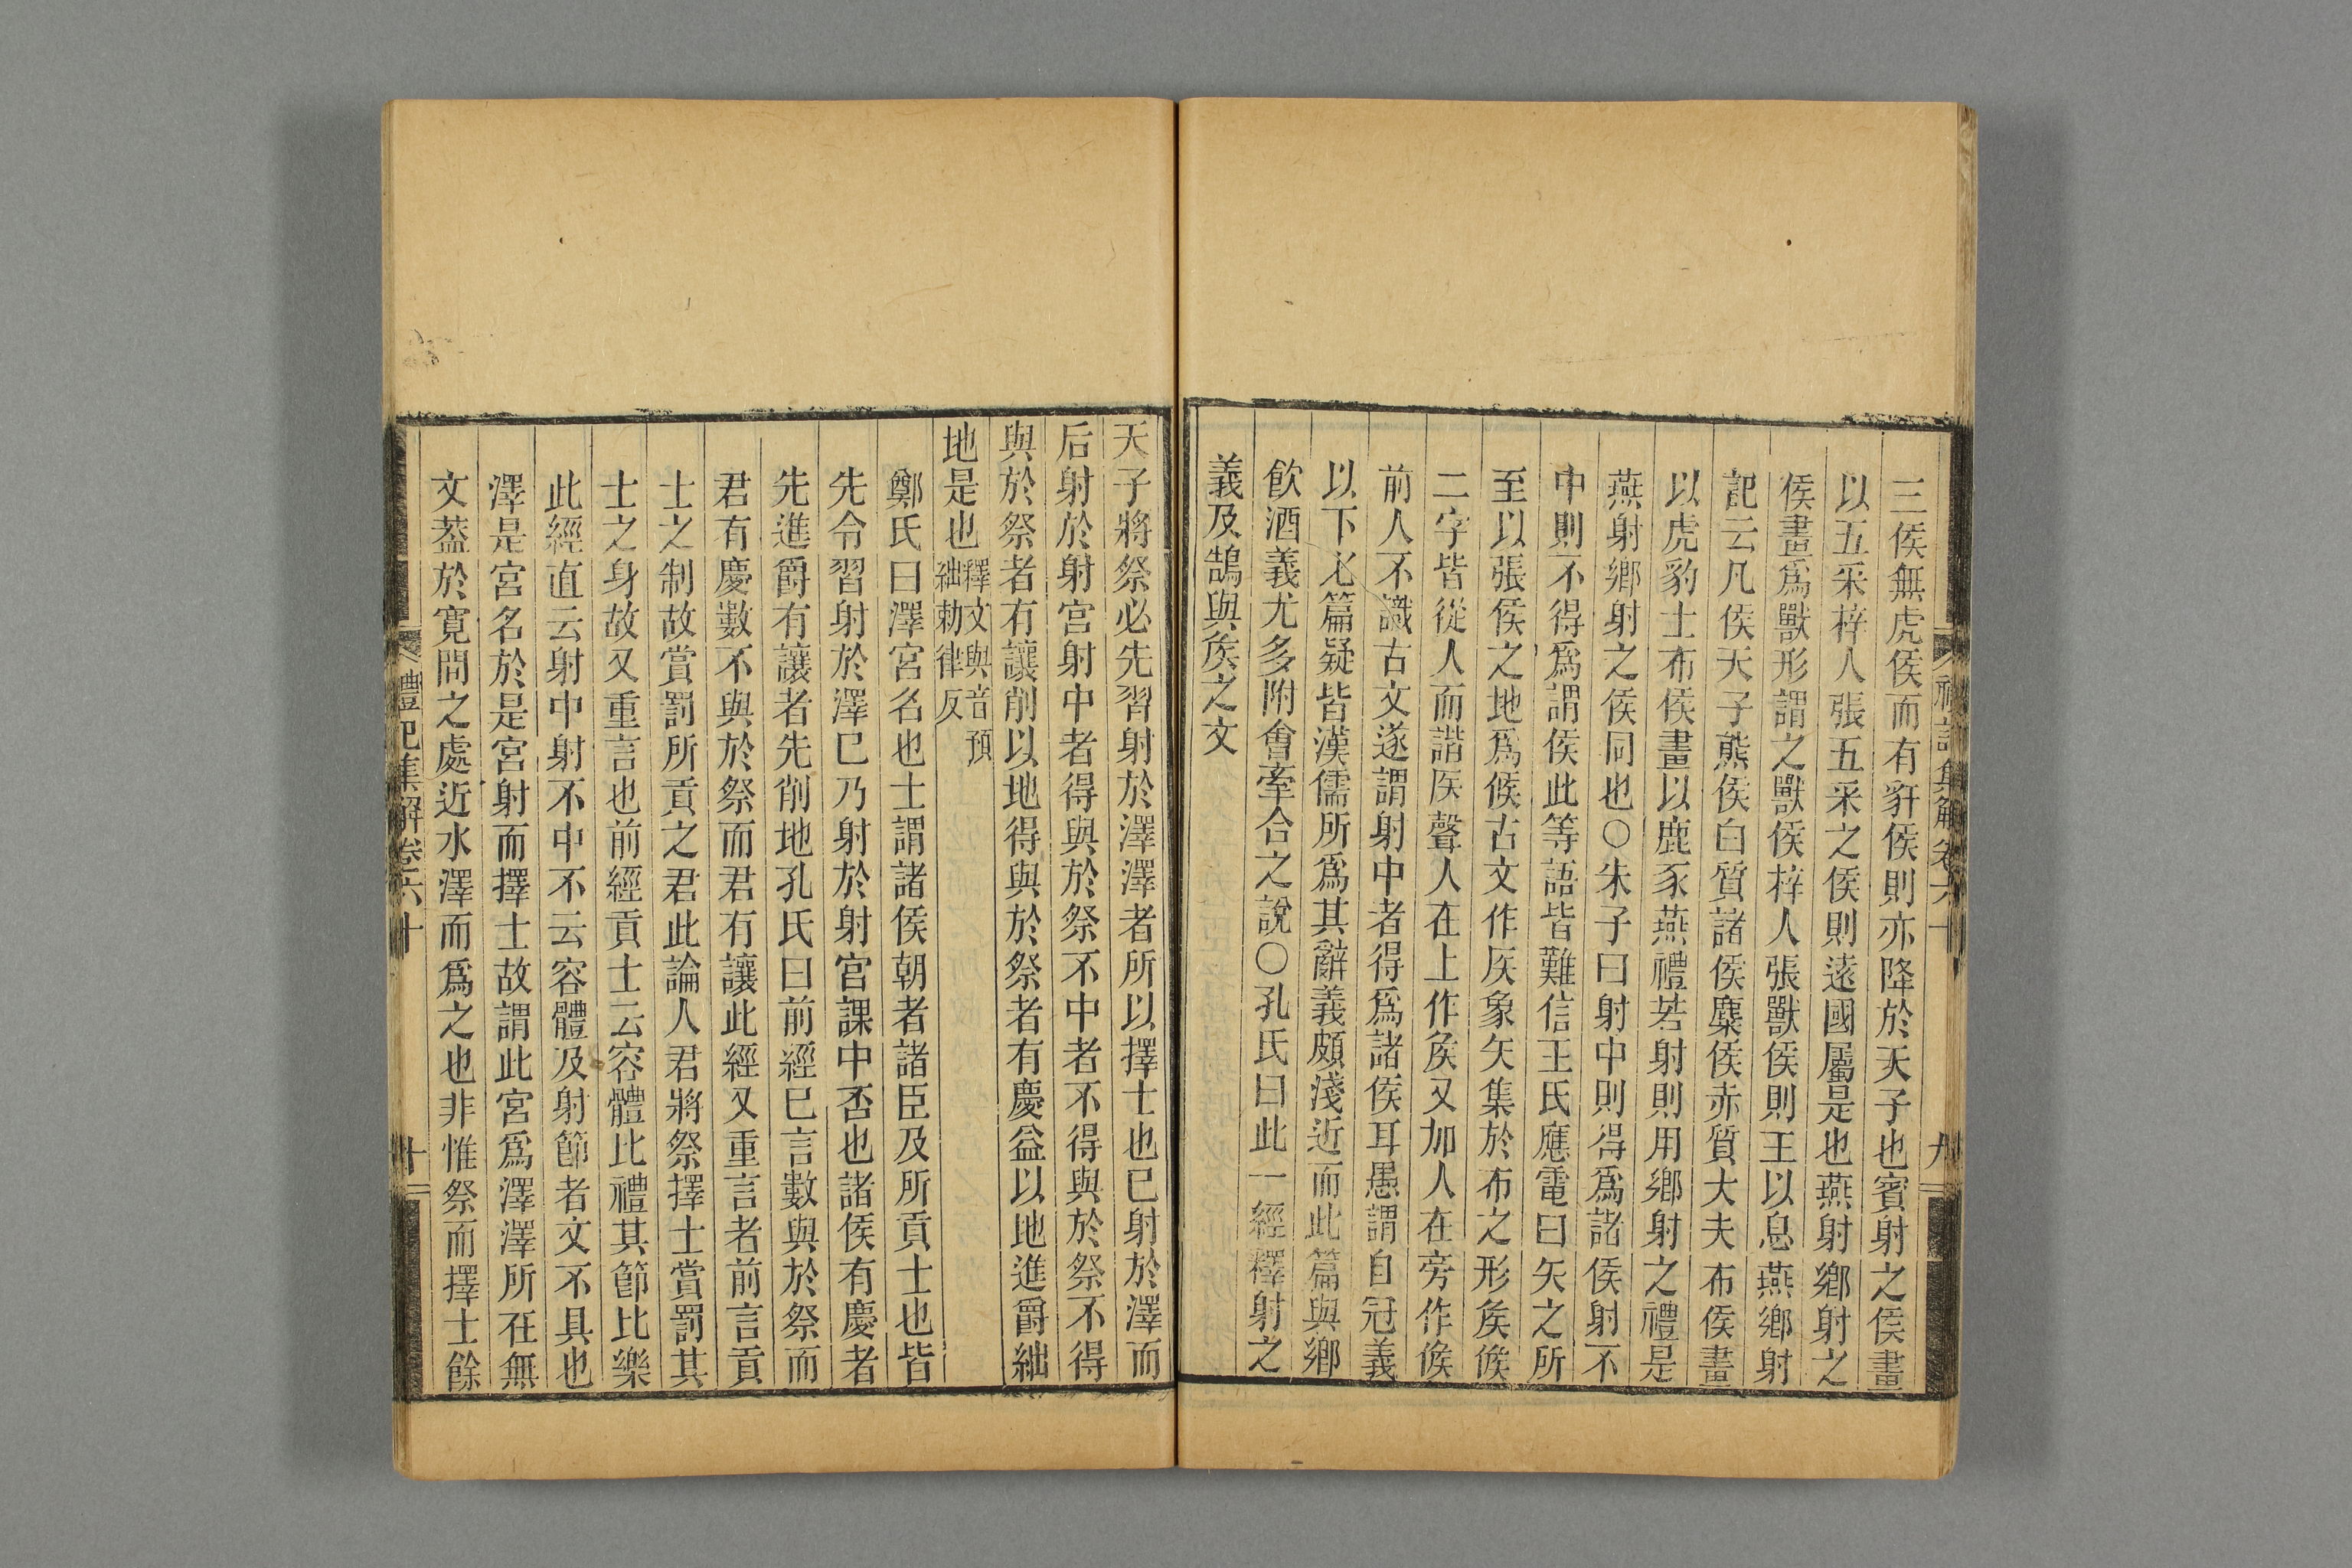 三侯無虎侯而有豻侯則亦降於天子也賓射之侯畫
以五采梓人張五采之侯則遠國屬是也燕射鄉射之
侯畫爲獸形謂之獸侯梓人張獸侯則王以息燕鄉射
記云凡侯天子熊侯白質諸侯麋侯赤質大夫布侯畫
以虎豹士布侯畫以鹿豕燕禮若射則用鄉射之禮是
燕射鄉射之侯同也○朱子曰射中則得爲諸侯射不
中則不得爲謂侯此等語皆難信王氏應電曰矢之所
至以張侯之地爲候古文作𥎦象矢集於布之形矦候
二字皆從人而諧𥎦聲人在上作矦又加人在旁作候
前人不識古文遂謂射中者得爲諸侯耳愚謂自冠義
以下七篇疑皆漢儒所爲其辭義頗淺近而此篇與鄉
飲酒義尤多附會牽合之說○孔氏曰此一經釋射之
義及鵠與矦之文
禮記集解卷六十
九
天子將祭必先習射於澤澤者所以擇士也已射於澤而
后射於射宮射中者得與於祭不中者不得與於祭不得
與於祭者有讓削以地得與於祭者有慶益以地進爵絀
地是也釋文與音預
絀勑律反
鄭氏曰澤宮名也士謂諸侯朝者諸臣及所貢士也皆
先令習射於澤已乃射於射宮課中否也諸侯有慶者
先進爵有讓者先削地孔氏曰前經已言數與於祭而
君有慶數不與於祭而君有讓此經又重言者前言貢
士之制故賞罰所貢之君此論人君將祭擇士賞罰其
士之身故又重言也前經貢士云容體比禮其節比樂
此經直云射中射不中不云容體及射節者文不具也
澤是宮名於是宮射而擇士故謂此宮爲澤澤所在無
文葢於寬閒之處近水澤而爲之也非惟祭而擇士餘
禮記集解卷六十
十